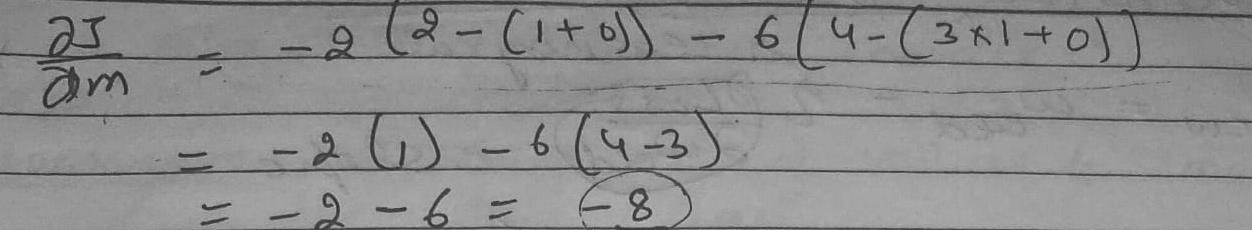 ∂J/∂m = -2(2-(1+0)) - 6(4-(3×1+0))
= -2(1) - 6(4-3)
= -2 - 6 = -8